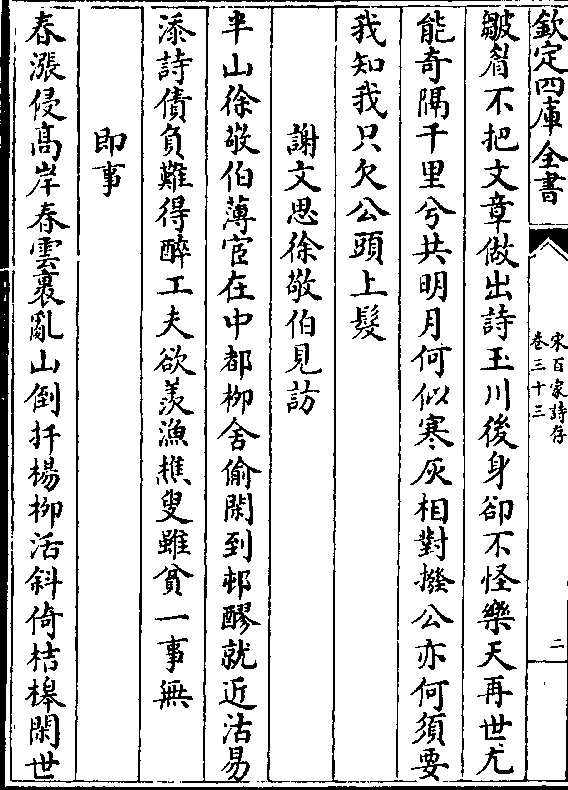 欽定四庫全書
宋百家詩存
卷三十三
二
皺眉不把文章做出詩玉川後身卻不怪樂天再世尤
能奇隔千里兮共明月何似寒灰相對撥公亦何須要
我知我只欠公頭上髮
謝文思徐敬伯見訪
半山徐敬伯薄宦在中都柳舍偷閑到邨醪就近沽易
添詩債負難得醉工夫欲羡漁樵叟雖貧一事無
即事
春漲侵髙岸春雲裹亂山倒扦楊柳活斜倚桔槹閑世